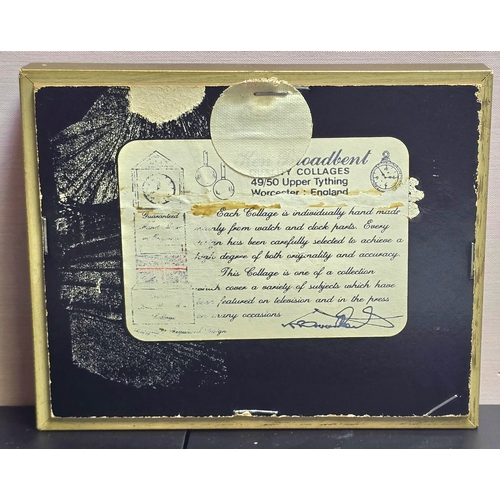 Ken Broadbent
COLLAGES
49/50 Upper Tything
Worcester : England
Guaranteed
Each Collage is individually hand made
mainly from watch and clock parts. Every
has been carefully selected to achieve a
high degree of both originality and accuracy.
This Collage is one of a collection
which cover a variety of subjects which have
been featured on television and in the press
on many occasions